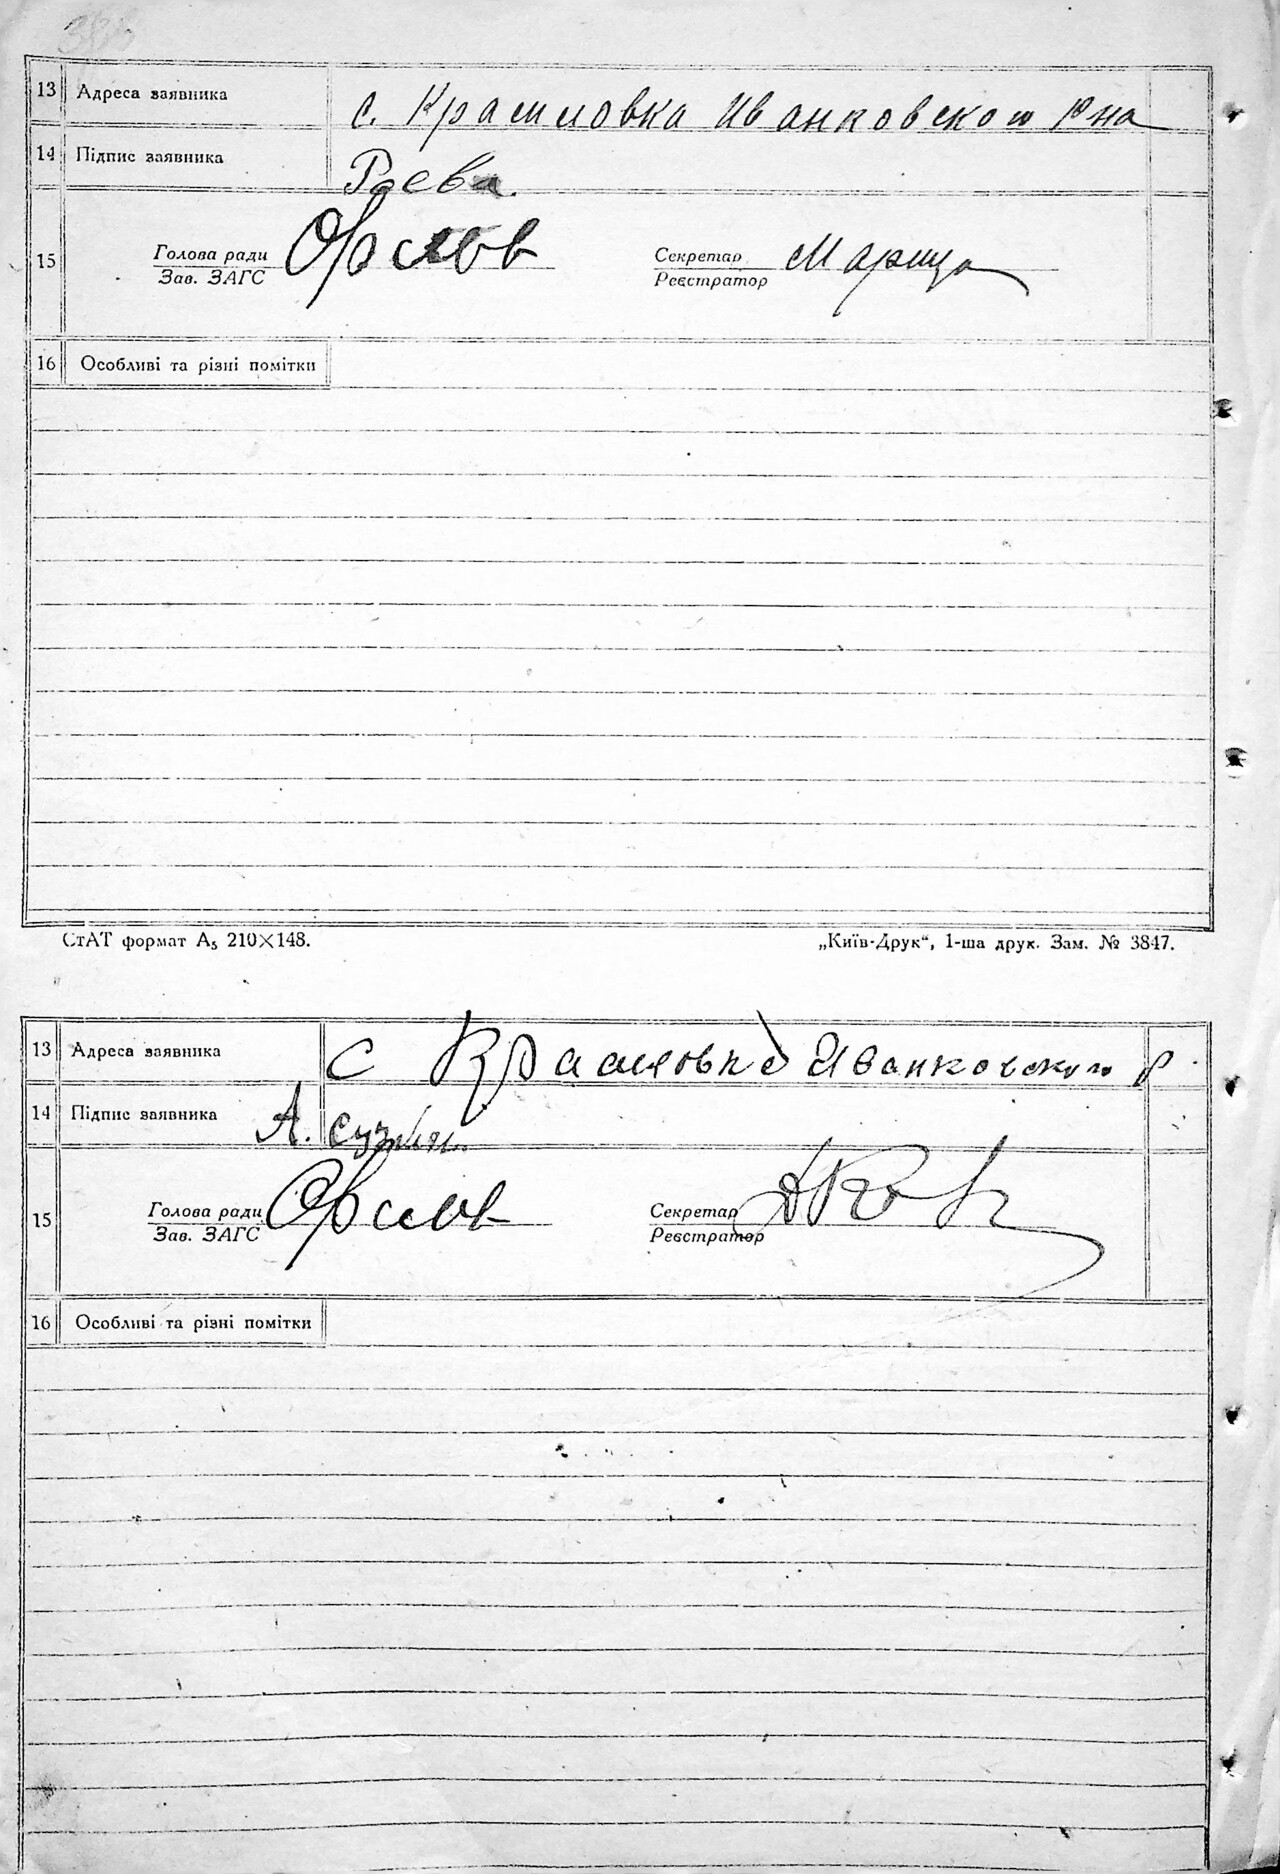 13 Адреса заявника с. Красиловка Иванковского Р на
14 Підпис заявника Роева.
15 Голова ради Орлов Секретар
Зав. ЗАГС Реєстратор
16 Особливі та різні помітки
СтАТ формат А₅ 210×148. „Київ-Друк“, 1-ша друк. Зам. № 3847.
13 Адреса заявника с Красиловке Иванковского Р
14 Підпис заявника А.
15 Голова ради Орлов Секретар
Зав. ЗАГС Реєстратор
16 Особливі та різні помітки